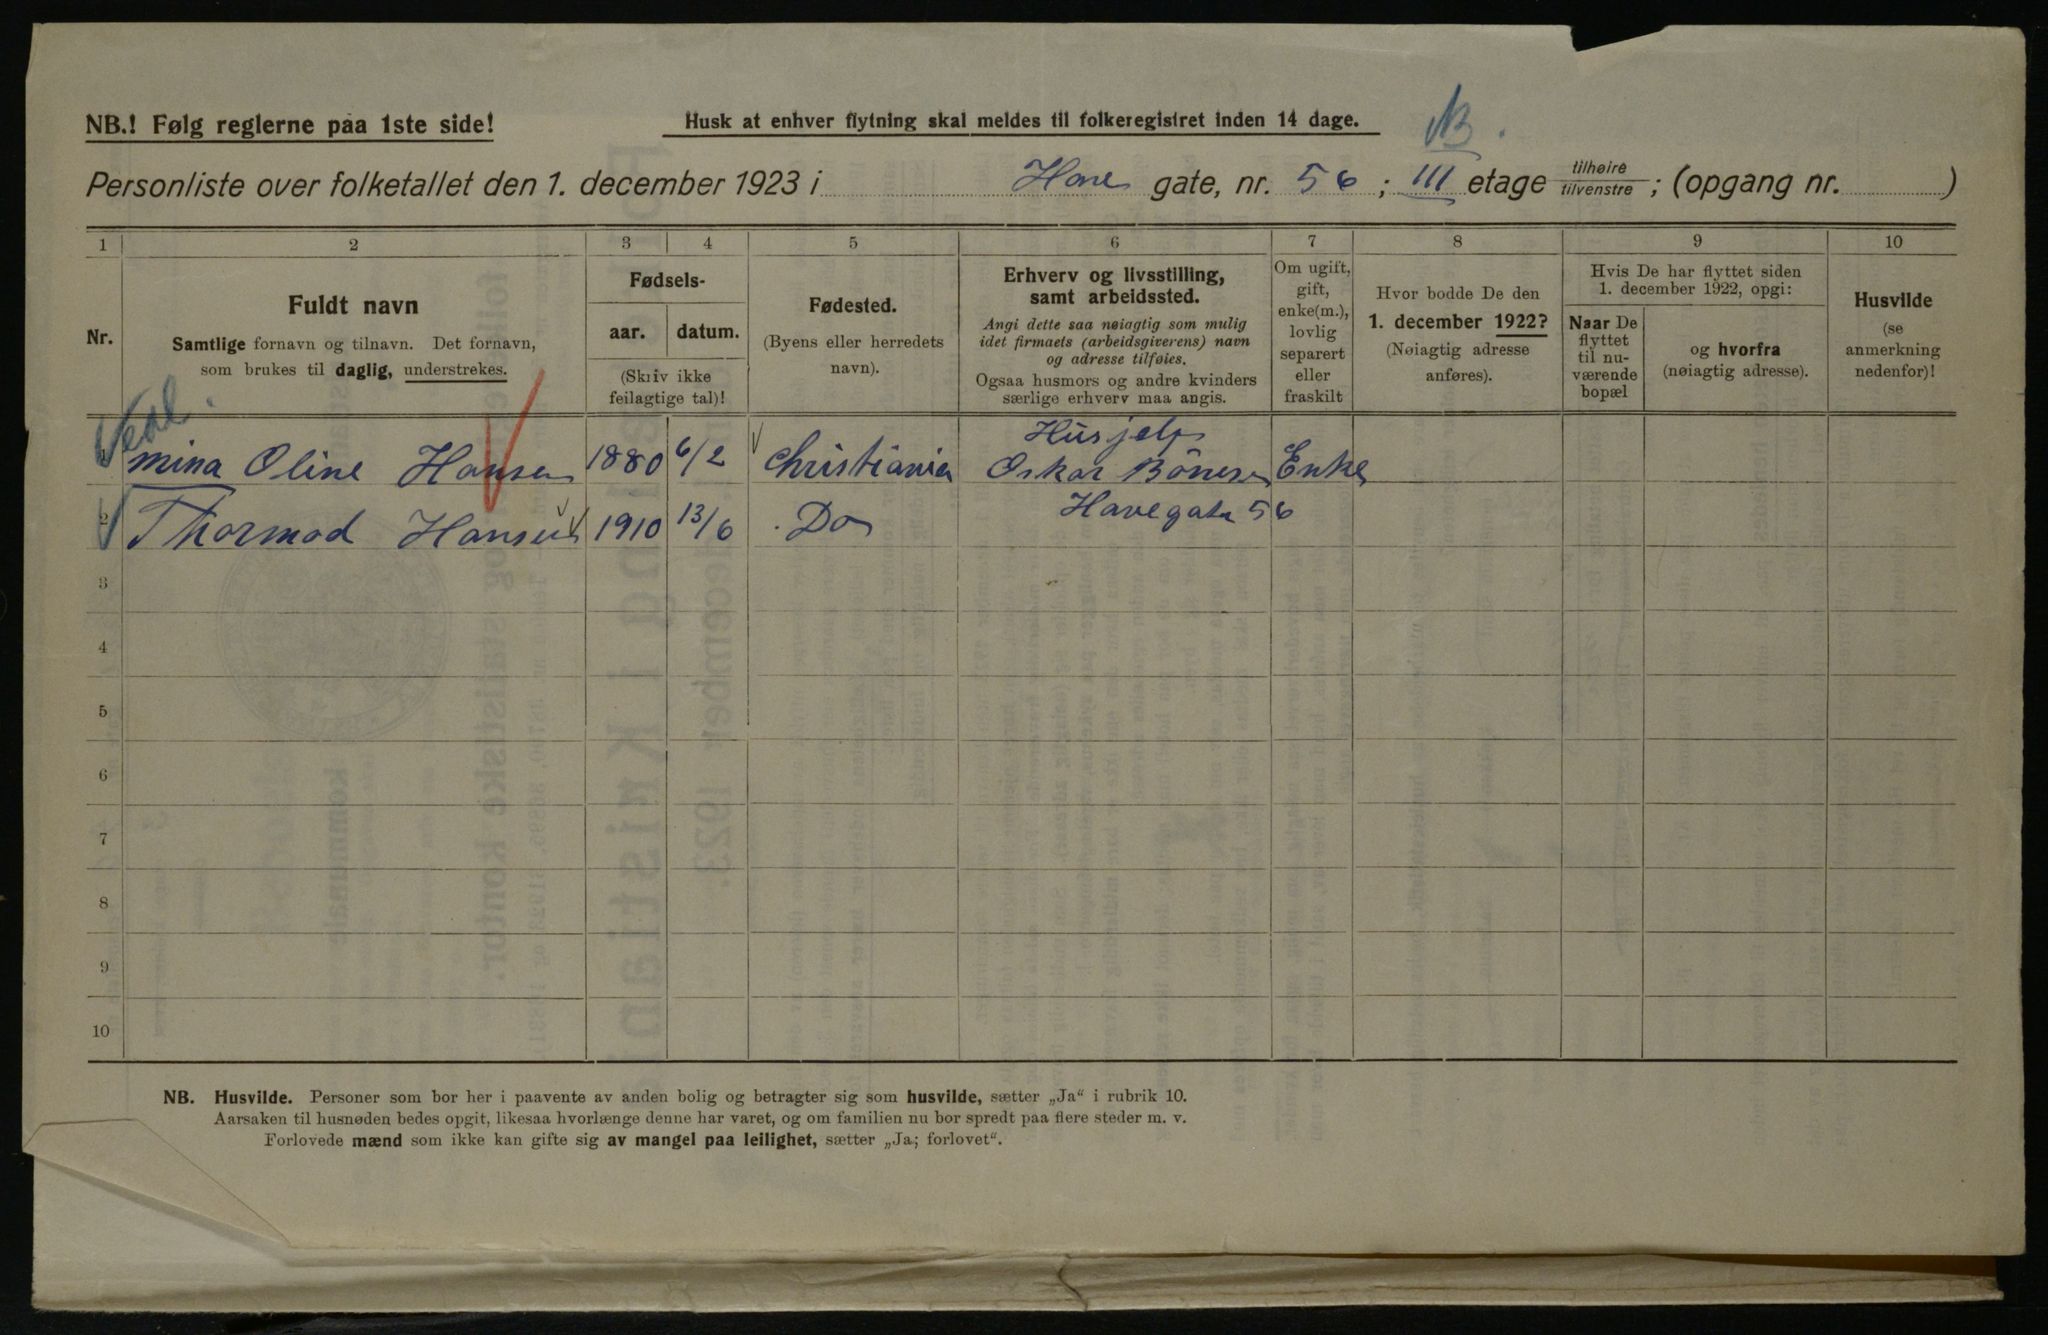 NB.! Følg reglerne paa 1ste side!
Husk at enhver flytning skal meldes til folkeregistret inden 14 dage.
Personliste over folketallet den 1. december 1923 i Have gate, nr. 56 ; III etage tilhøire tilvenstre ; (opgang nr. )
1 2 3 4 5 6 7 8 9 10
Nr.
Fuldt navn
Samtlige fornavn og tilnavn. Det fornavn,
som brukes til daglig, understrekes.
Fødsels-
aar. datum.
(Skriv ikke
feilagtige tal)!
Fødested.
(Byens eller herredets
navn).
Erhverv og livsstilling,
samt arbeidssted.
Angi dette saa nøiagtig som mulig
idet firmaets (arbeidsgiverens) navn
og adresse tilføies.
Ogsaa husmors og andre kvinders
særlige erhverv maa angis.
Om ugift,
gift,
enke(m.),
lovlig
separert
eller
fraskilt
Hvor bodde De den
1. december 1922?
(Nøiagtig adresse
anføres).
Hvis De har flyttet siden
1. december 1922, opgi:
Naar De
flyttet
til nu-
værende
bopæl
og hvorfra
(nøiagtig adresse).
Husvilde
(se
anmerkning
nedenfor)!
Husjelp
mina Oline Hansen 1880 6/2 Christiania Oskar Bönesen Enke
Havegata 56
2 Thormod Hansen 1910 13/6 Do
3
4
5
6
7
8
9
10
NB. Husvilde. Personer som bor her i paavente av anden bolig og betragter sig som husvilde, sætter „Ja“ i rubrik 10.
Aarsaken til husnøden bedes opgit, likesaa hvorlænge denne har varet, og om familien nu bor spredt paa flere steder m. v.
Forlovede mænd som ikke kan gifte sig av mangel paa leilighet, sætter „Ja; forlovet“.